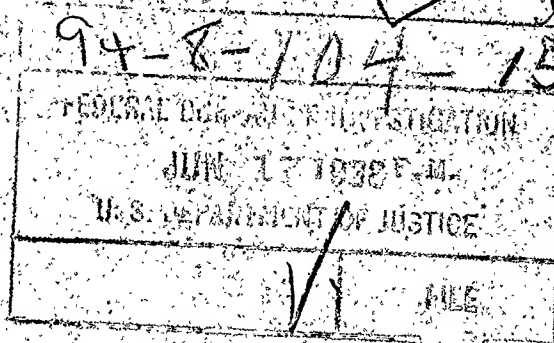 94-8-104-15
FEDERAL BUREAU OF INVESTIGATION
JUN 17 1938 P.M.
U. S. DEPARTMENT OF JUSTICE
FILE